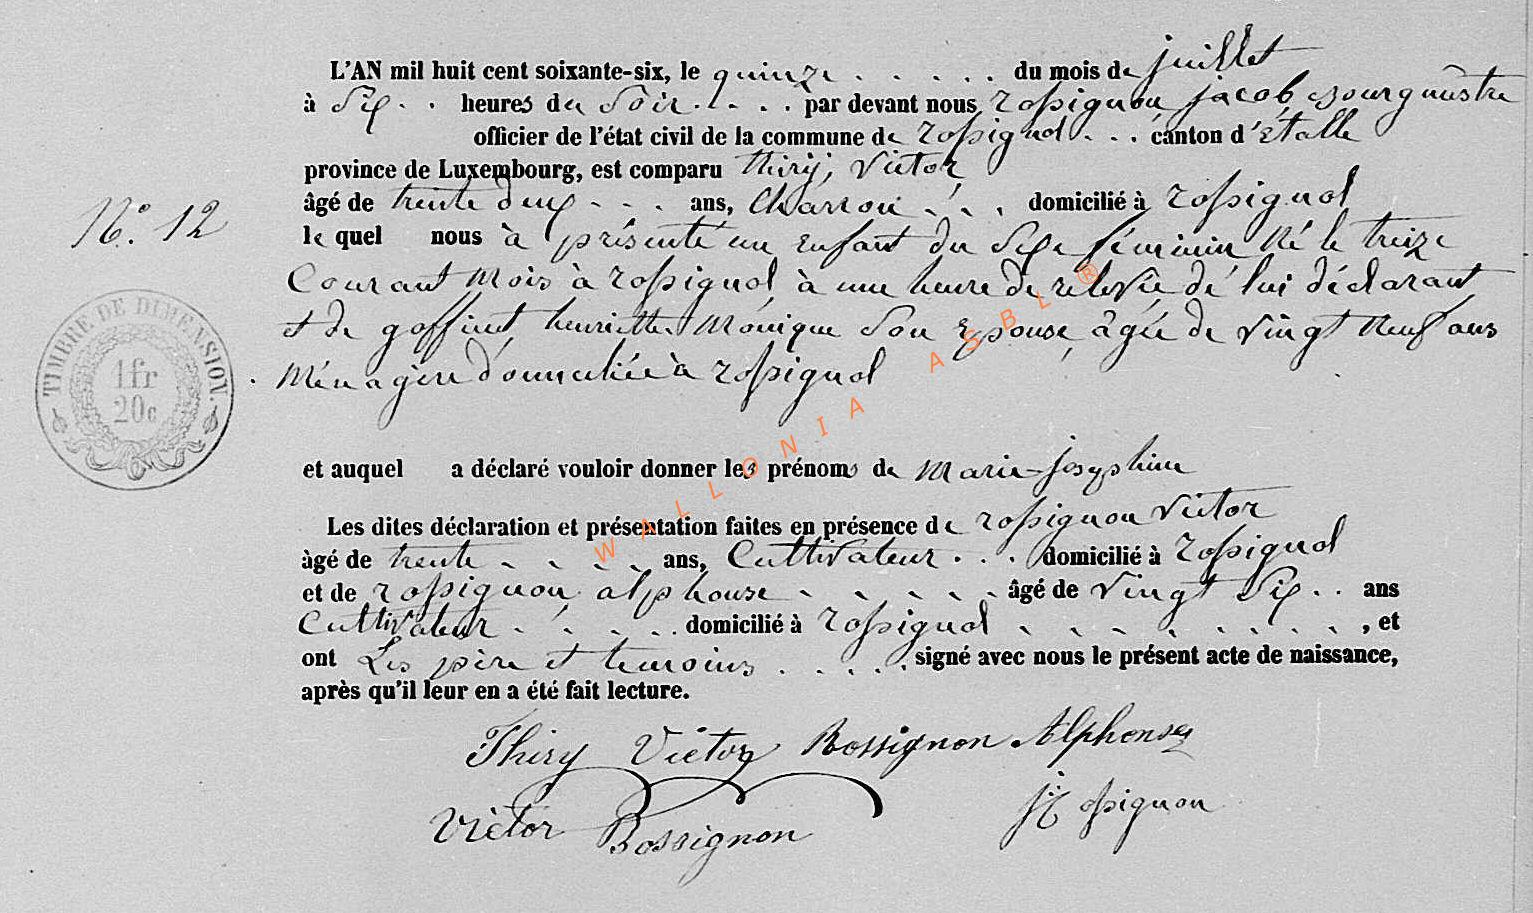 L'AN mil huit cent soixante-six, le quinze . . . . . du mois de juillet
à Six . . heures du Soir . . . . par devant nous rossignon jacob, bourgmestre
officier de l'état civil de la commune de rossignol . . . canton d'étalle
province de Luxembourg, est comparu thiry, victor,
N° 12
âgé de trente deux . . . ans, Charron . . . domicilié à rossignol
le quel nous à présenté un enfant du sexe féminin Né le treize
Courant Mois à rossignol à une heure de relevée de lui déclarant
et de goffinet, henriette Monique son Epouse, âgée de vingt Neuf ans
Ménagère domiciliée à rossignol
TIMBRE DE DIMENSION.
1fr
20c
et auquel a déclaré vouloir donner les prénoms de Marie-josephine
Les dites déclaration et présentation faites en présence de rossignon victor
âgé de trente . . . . ans, Cultivateur . . . domicilié à rossignol
et de rossignon alphonse . . . . . âgé de vingt six . . ans
Cultivateur . . . . . domicilié à rossignol . . . . . . . . , et
ont Les père et temoins . . . . . signé avec nous le présent acte de naissance,
après qu'il leur en a été fait lecture.
Thiry Victor Rossignon Alphonse
Victor Rossignon
J. Rossignon
WALLONIA ASBL ®